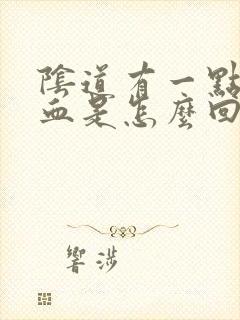 陰道有一點
血是怎麼回
響涉